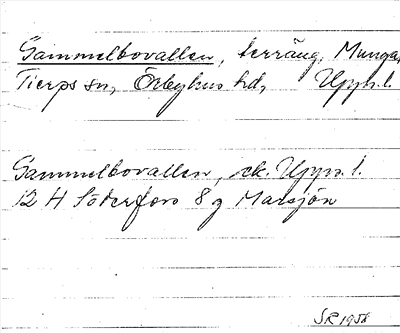 Gammelbovallen, terräng, Munga,
Tierps sn, Örbyhus hd, Upps.l.
Gammelbovallen, ek. Upps.l.
12 H Söderfors 8 g Marsjön
SR 1958